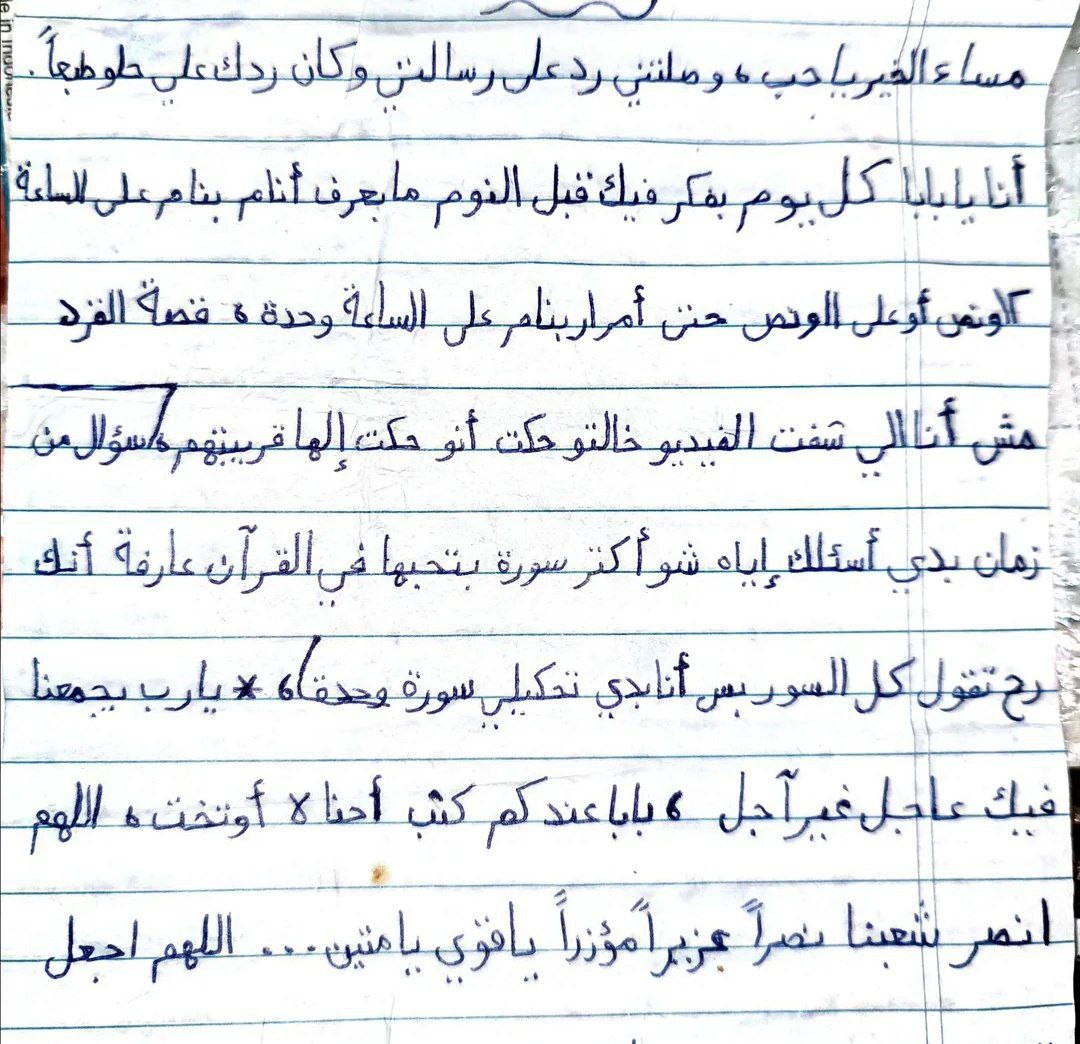 مساء الخير يا حب ، وصلتني رد على رسالتي وكان ردك علي حلو طبعاً.
أنا يا بابا كل يوم بفكر فيك قبل النوم ما بعرف أنام بنام على الساعة
الونص أو على الونص حتى أمرار بنام على الساعة وحدة ، قصة القرد
مش أنا الي شفت الفيديو خالتو حكت أنو حكت إلها قريبتهم ، سؤال من
زمان بدي أسئلك إياه شو أكتر سورة بتحبها في القرآن عارفة أنك
رح تقول كل السور بس أنا بدي تحكيلي سورة وحدة ، * يا رب يجمعنا
فيك عاجل غير آجل ، بابا عندكم كتب أحنا لا أوتخت ، اللهم
انصر شعبنا نصراً عزيزاً مؤزراً يا قوي يا متين... اللهم اجعل